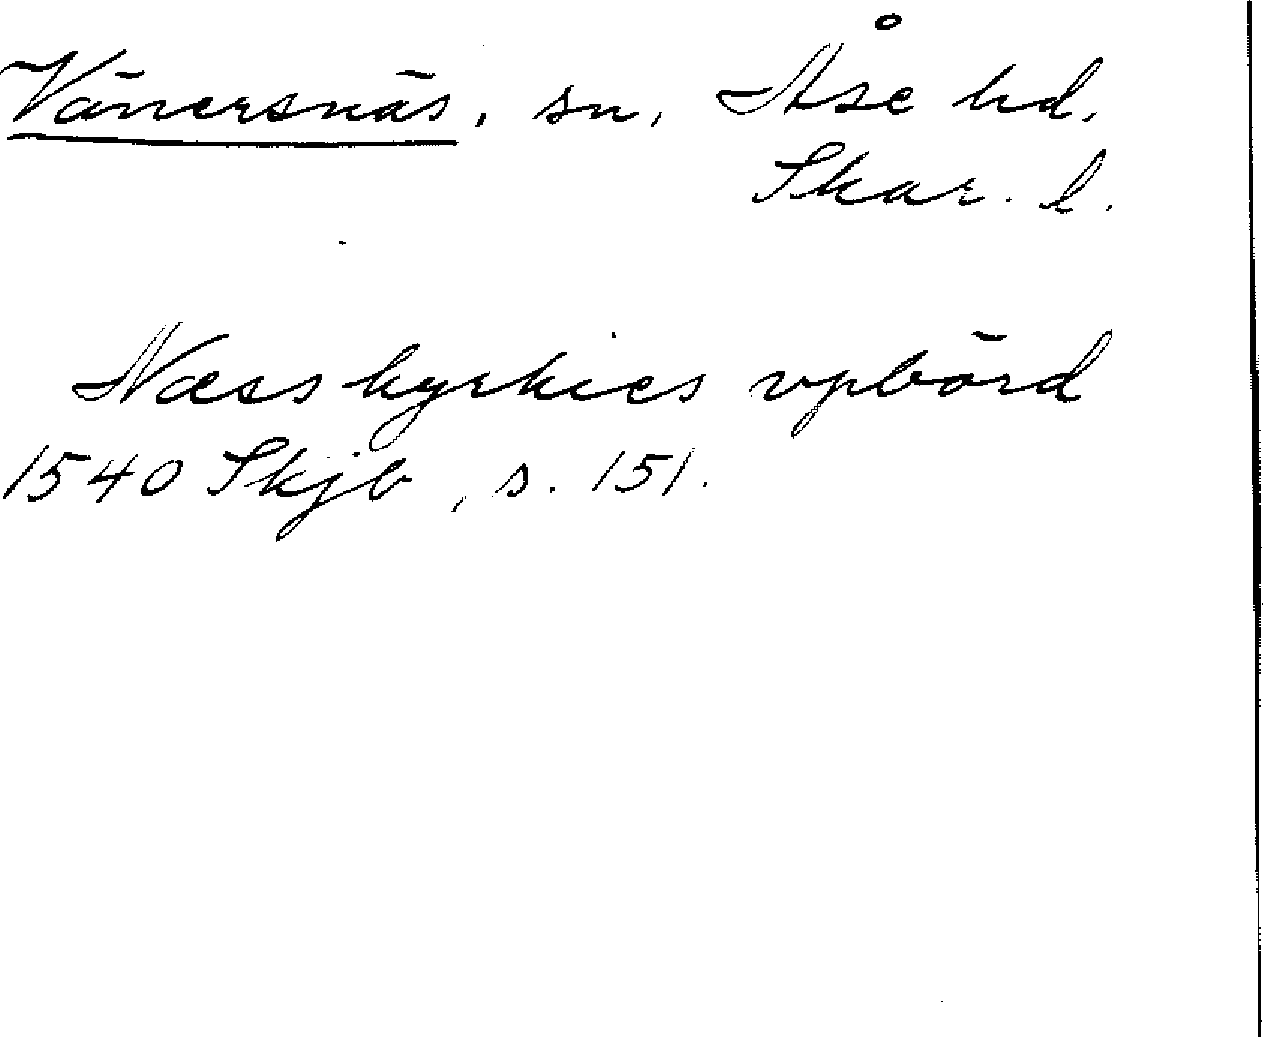 Vänersnäs, sn, Åse hd.
Skar. l.
Næss kyrkies vpbörd
1540 Skjb, s. 151.